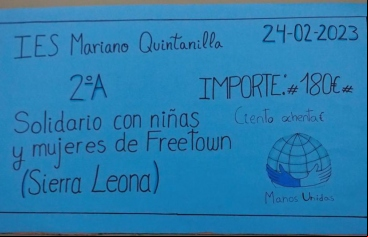 IES Mariano Quintanilla
24-02-2023
2ºA
IMPORTE: #180€#
Solidario con niñas
Ciento ochenta €
y mujeres de Freetown
(Sierra Leona)
Manos Unidas